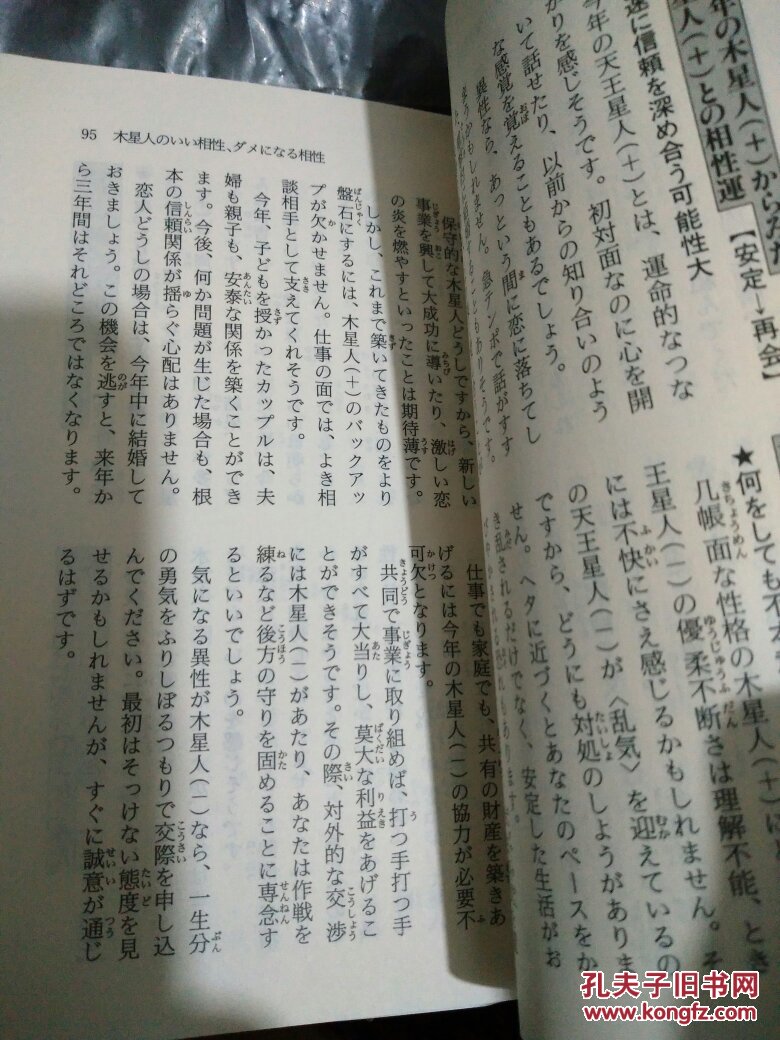 年の木星人(+)からみた
星人(+)との相性運【安定→再会】
速に信頼を深め合う可能性大
今年の天王星人(+)とは、運命的なつな
がりを感じそうです。初対面なのに心を開
いて話せたり、以前からの知り合いのよう
な感覚を覚えることもあるでしょう。
異性なら、あっという間に恋に落ちてし
まうかもしれません。急テンポで話がすす
★何をしても不
几帳面な性格の木星人(+)に
王星人(−)の優柔不断さは理解不能、とき
には不快にさえ感じるかもしれません。そ
の天王星人(−)が〈乱気〉を迎えているの
ですから、どうにも対処のしようがありま
せん。ヘタに近づくとあなたのペースをか
き乱されるだけでなく、安定した生活がお
びやかされる恐れもあります。
95 木星人のいい相性、ダメになる相性
保守的な木星人どうしですから、新しい
事業を興して大成功に導いたり、激しい恋
の炎を燃やすといったことは期待薄です。
しかし、これまで築いてきたものをより
盤石にするには、木星人(+)のバックアッ
プが欠かせません。仕事の面では、よき相
談相手として支えてくれそうです。
今年、子どもを授かったカップルは、夫
婦も親子も、安泰な関係を築くことができ
ます。今後、何か問題が生じた場合も、根
本の信頼関係が揺らぐ心配はありません。
恋人どうしの場合は、今年中に結婚して
おきましょう。この機会を逃すと、来年か
ら三年間はそれどころではなくなります。
仕事でも家庭でも、共有の財産を築きあ
げるには今年の木星人(−)の協力が必要不
可欠となります。
共同で事業に取り組めば、打つ手打つ手
がすべて大当りし、莫大な利益をあげるこ
とができそうです。その際、対外的な交渉
には木星人(−)があたり、あなたは作戦を
練るなど後方の守りを固めることに専念す
るといいでしょう。
気になる異性が木星人(−)なら、一生分
の勇気をふりしぼるつもりで交際を申し込
んでください。最初はそっけない態度を見
せるかもしれませんが、すぐに誠意が通じ
るはずです。
孔夫子旧书网
www.kongfz.com